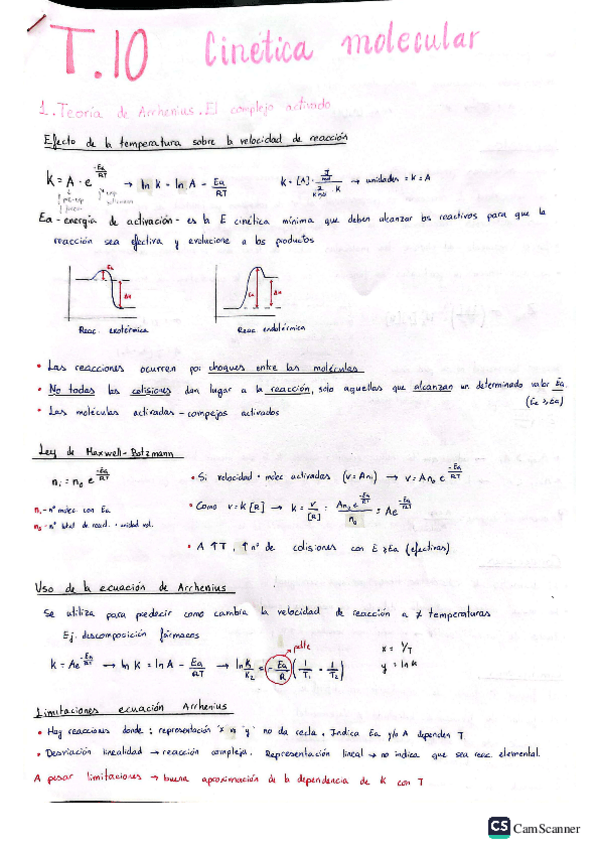 T.10 Cinética molecular
1. Teoría de Arrhenius. El complejo activado
Efecto de la temperatura sobre la velocidad de reacción
k = A · e^(-Ea/RT) → ln k = ln A - Ea/RT
→ unidades = k = A
Ea - energía de activación - es la E cinética mínima que deben alcanzar los reactivos para que la
reacción sea efectiva y evolucione a los productos
Ea
ΔH
Ea
ΔH
Reac. exotérmica
Reac endotérmica
• Las reacciones ocurren por choques entre las moléculas
• No todas las colisiones dan lugar a la reacción, solo aquellas que alcanzan un determinado valor Ea.
(Ec ≥ Ea)
• Las moléculas activadas - compejos activados
Ley de Maxwell-Botzmann
ni = n0 e^(-Ea/RT)
ni - nº molec con Ea
n0 - nº total de react. · unidad vol.
• Si velocidad · molec activadas (v = Ani) → v = A n0 e^(-Ea/RT)
• Como v = k [R] → k = v/[R] = A n0 e^(-Ea/RT)/n0 = Ae^(-Ea/RT)
• A ↑↑T, ↑nº de colisiones con E ≥ Ea (efectivas)
Uso de la ecuación de Arrhenius
Se utiliza para predecir como cambia la velocidad de reacción a ≠ temperaturas
Ej. descomposición fármacos
k = Ae^(-Ea/RT) → ln k = ln A - Ea/RT → ln k/k2 = - Ea/R (1/T1 - 1/T2)
x = 1/T
y = ln k
Limitaciones ecuación Arrhenius
• Hay reacciones donde: representación "x" "y" no da recta. Indica Ea y/o A dependen T.
• Desviación linealidad → reacción compleja. Representación lineal → no indica que sea reac. elemental.
A pesar limitaciones → buena aproximación de la dependencia de k con T
CS CamScanner